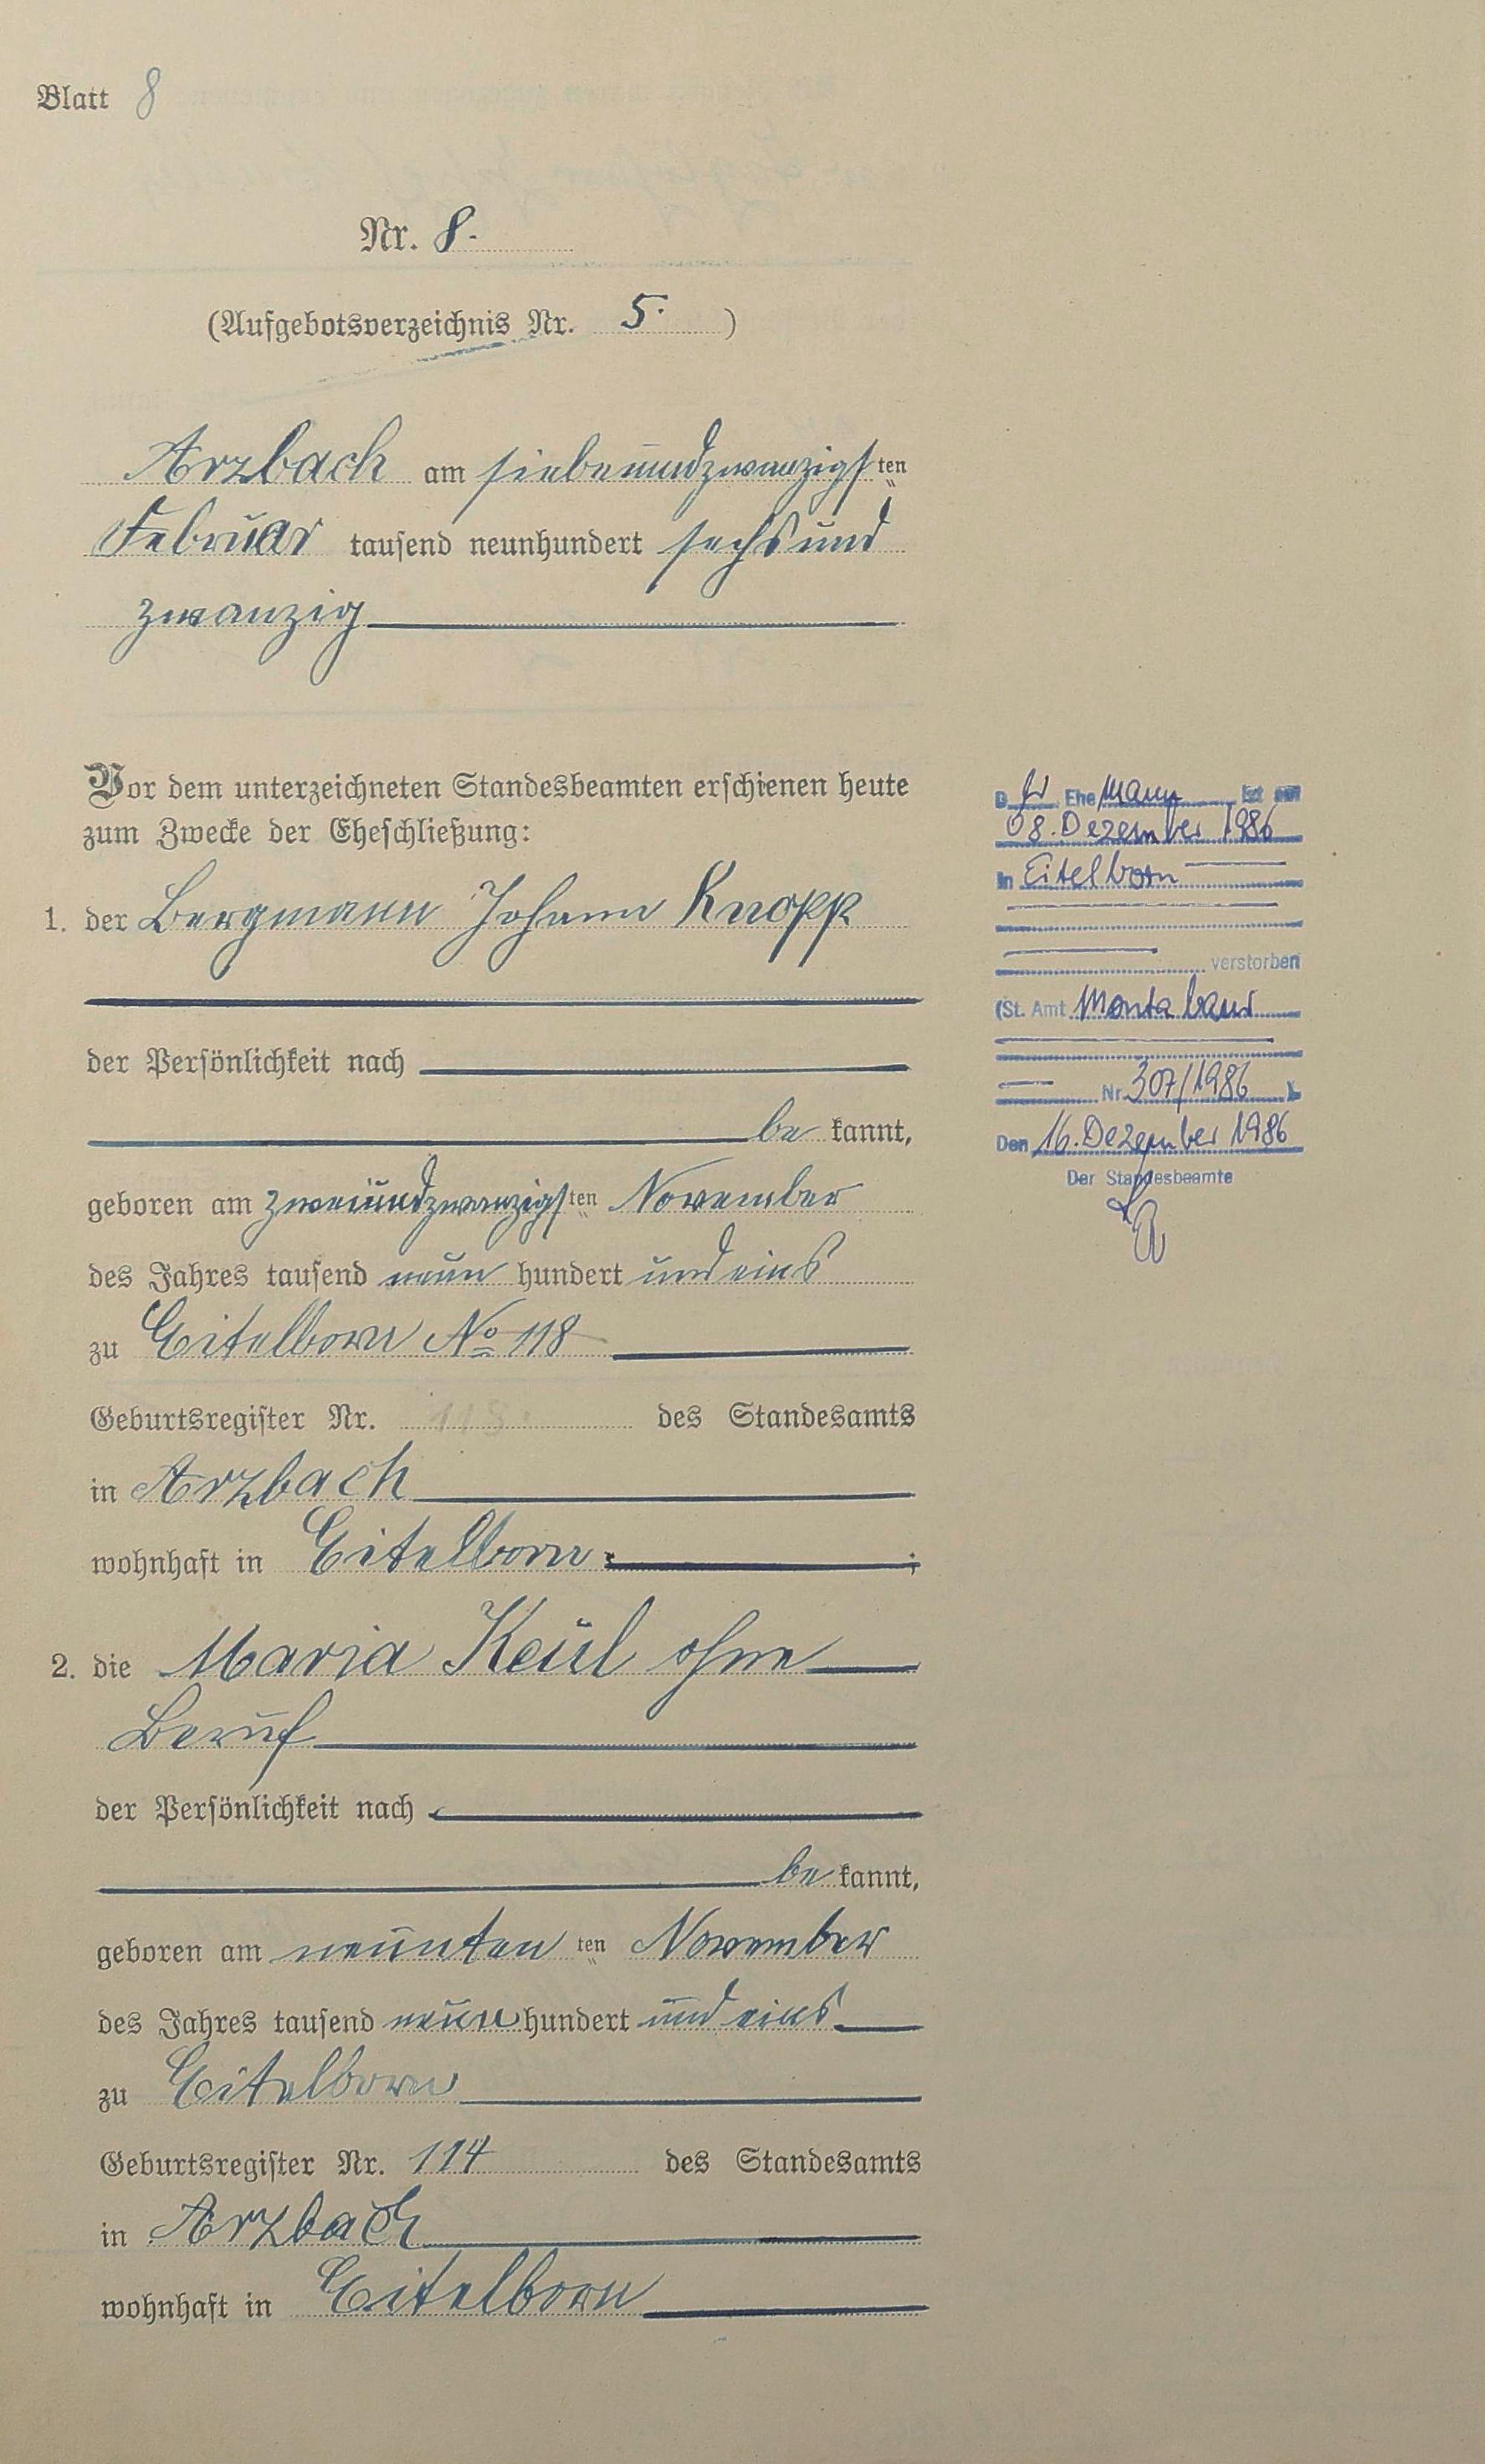 Blatt 8
Nr. 8.
(Aufgebotsverzeichnis Nr. 5. )
Arzbach am siebenundzwanzigsten
Februar tausend neunhundert sechsund
zwanzig
Vor dem unterzeichneten Standesbeamten erschienen heute
zum Zwecke der Eheschließung:
1. der Bergmann Johann Knopp
der Persönlichkeit nach
be kannt,
geboren am zweiundzwanzigsten November
des Jahres tausend neun hundert und eins
zu Eitelborn No 118
Geburtsregister Nr. 118. des Standesamts
in Arzbach
wohnhaft in Eitelborn ;
2. die Maria Keul ohne
Beruf
der Persönlichkeit nach
be kannt,
geboren am neunten ten November
des Jahres tausend neun hundert und eins
zu Eitelborn
Geburtsregister Nr. 114 des Standesamts
in Arzbach
wohnhaft in Eitelborn
Der Ehemann ist am
08. Dezember 1986
in Eitelborn
verstorben
(St. Amt Montabaur
Nr. 307/1986 )
Den 16. Dezember 1986
Der Standesbeamte